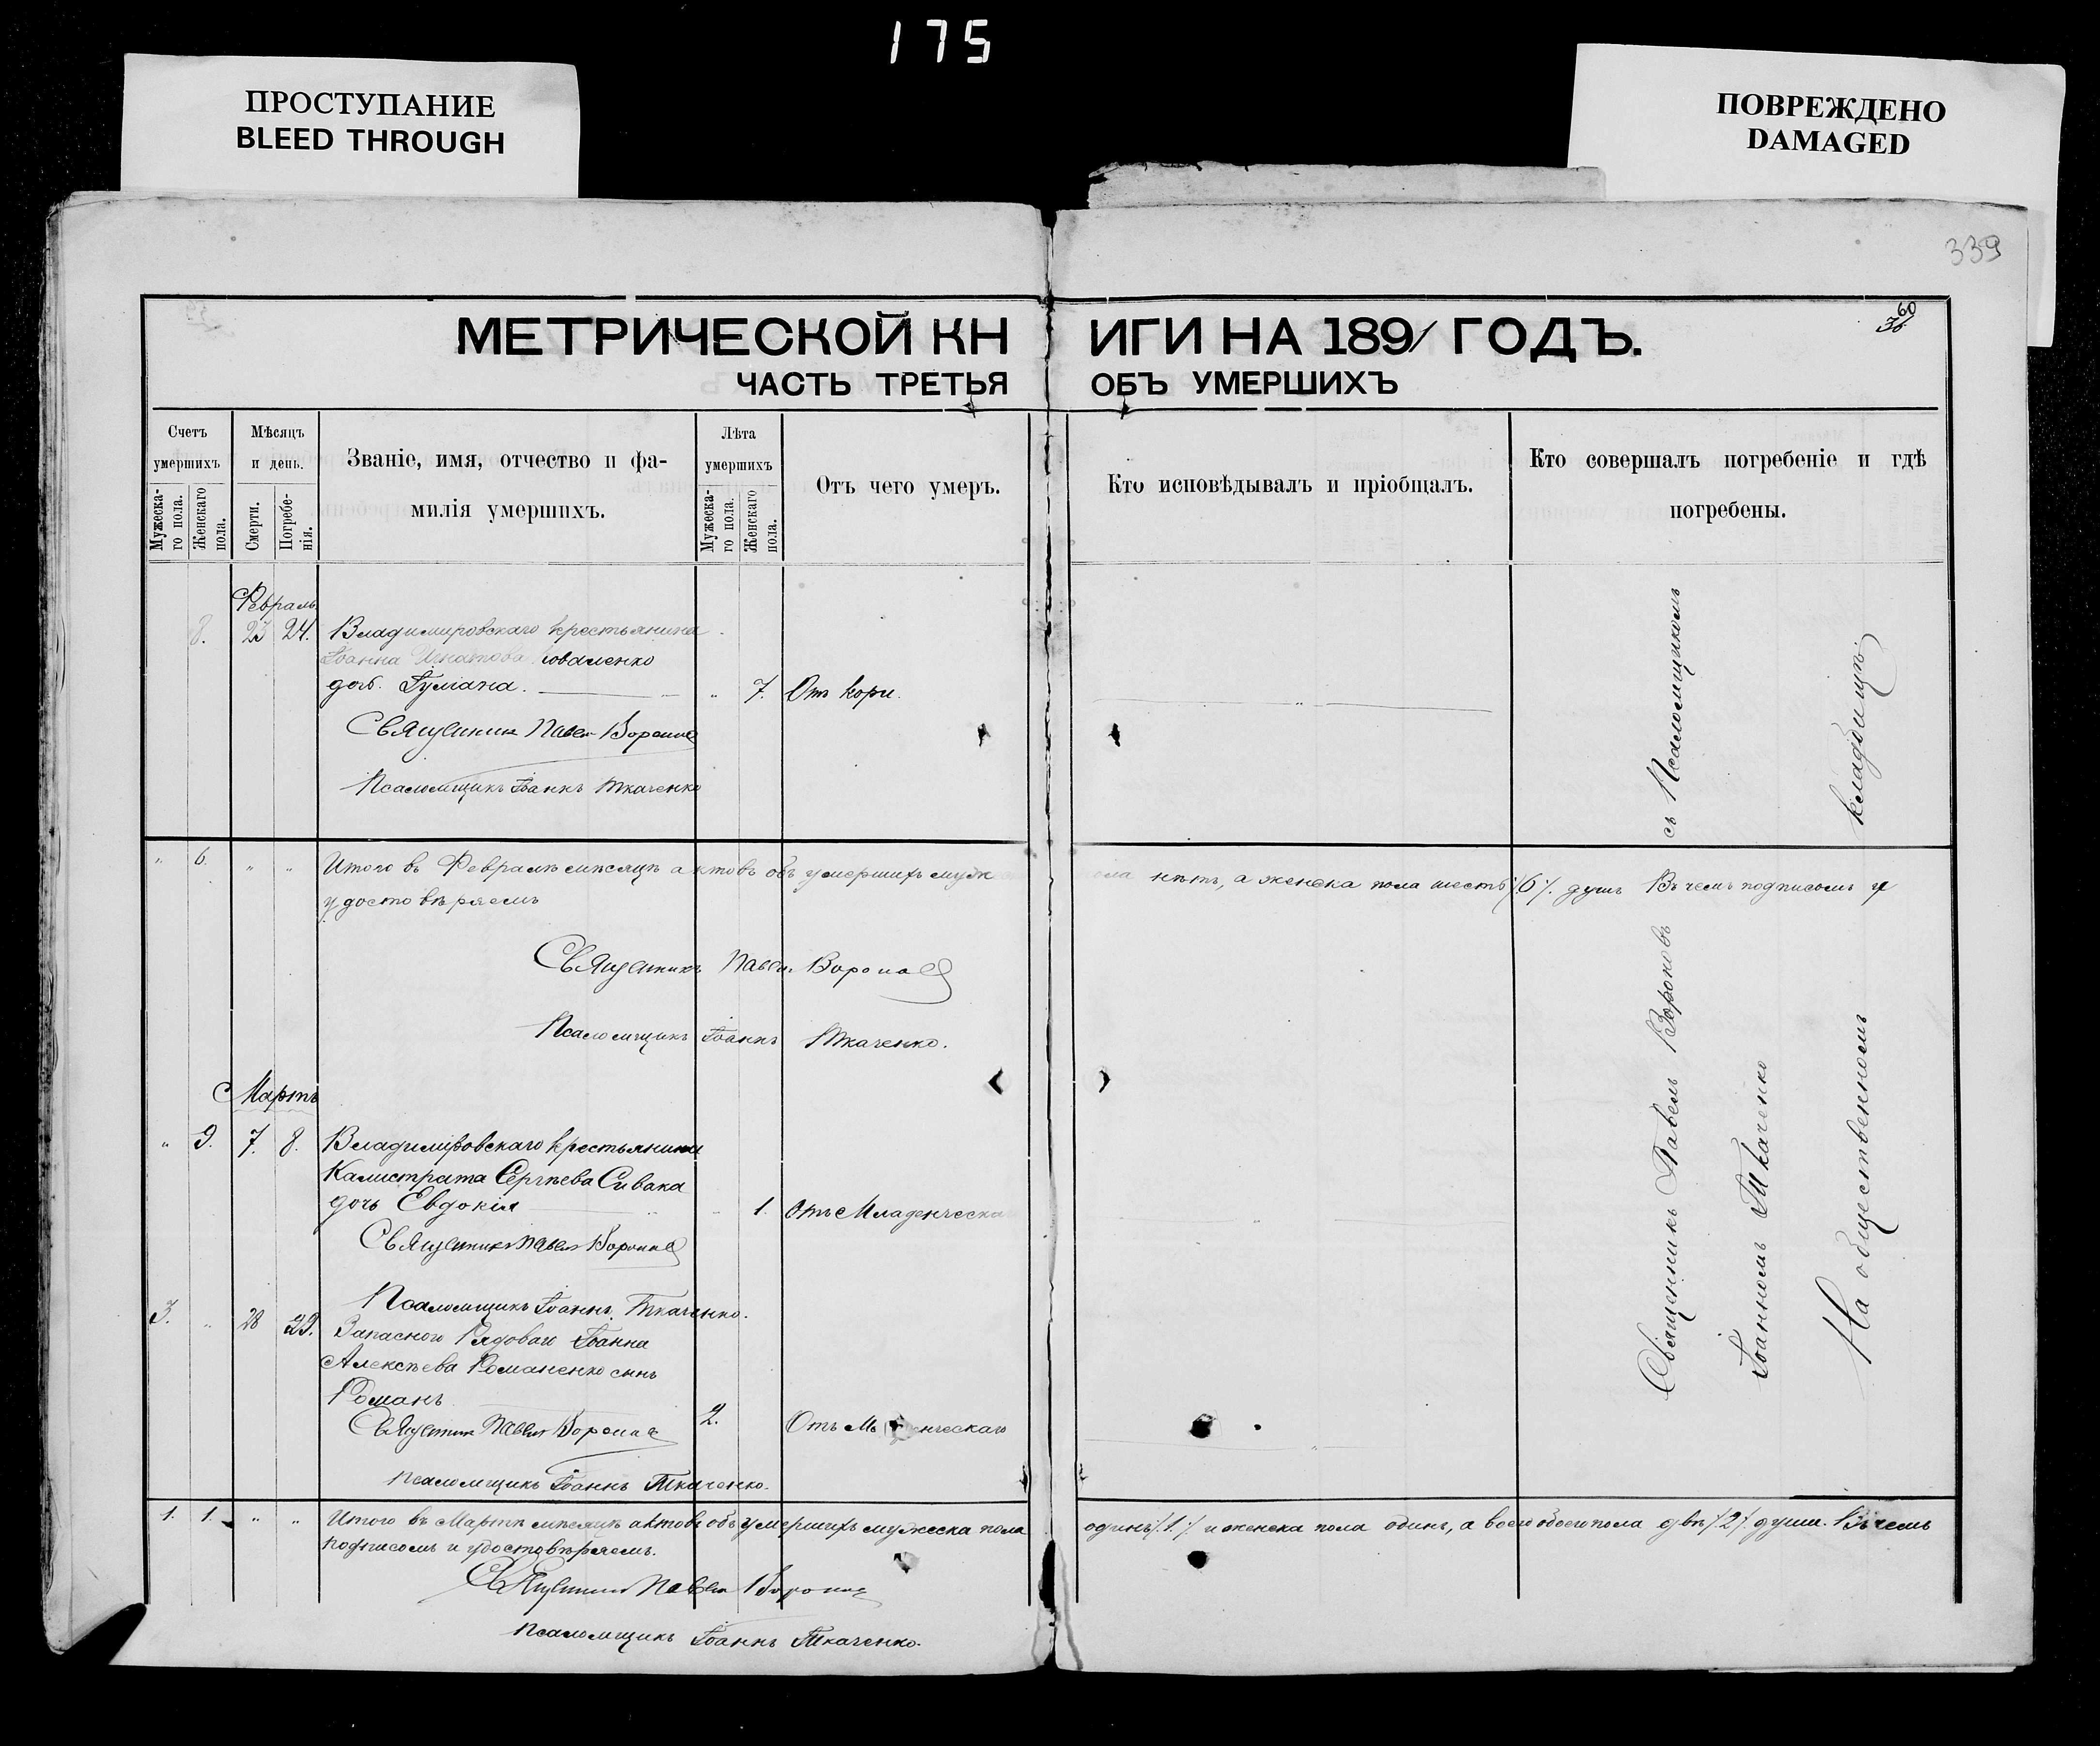 175
ПРОСТУПАНИЕ
BLEED THROUGH
ПОВРЕЖДЕНО
DAMAGED
339
60
МЕТРИЧЕСКОЙ КНИГИ НА 1891 ГОДЪ.
ЧАСТЬ ТРЕТЬЯ ОБЪ УМЕРШИХЪ
Счетъ умершихъ
Мужеска-го пола.
Женскаго пола.
Мѣсяцъ и день.
Смерти.
Погребе-нія.
Званіе, имя, отчество и фа-
милія умершихъ.
Лѣта умершихъ
Мужеска-го пола.
Женскаго пола.
Отъ чего умеръ.
Кто исповѣдывалъ и пріобщалъ.
Кто совершалъ погребеніе и гдѣ
погребены.
Февраль
8. 23 24. Владимировскаго крестьянина
Іоанна Игнатова Коваленко
дочь 7. Отъ кори.
Священникъ Павелъ Вороновъ
Псаломщикъ Іоаннъ Ткаченко
" 6. " " Итого въ Февралѣ мѣсяцѣ актовъ объ умершихъ муж ола нѣтъ, а женска пола шесть /6/. душъ Въ чемъ подписомъ и
удостовѣряемъ
Священникъ Павелъ Вороновъ
Псаломщикъ Іоаннъ Ткаченко.
Мартъ
" 9. 7. 8. Владимировскаго крестьянина
Калистрата Сергѣева Сивака
дочь Евдокія " 1. Отъ Младенческа
Священникъ Павелъ Вороновъ
Псаломщикъ Іоаннъ Ткаченко.
3. " 28 29. Запасного Рядового Іоанна
Алексѣева Романенко сынъ
Романъ 2. Отъ Мл нческаго
Священникъ Павелъ Вороновъ
Псаломщикъ Іоаннъ Ткаченко.
Священникъ Павелъ Вороновъ съ Псаломщикомъ
Іоанномъ Ткаченко
На общественномъ кладбищѣ.
1. 1. " " Итого въ Мартѣ мѣсяцѣ актовъ объ умершихъ мужеска пола одинъ /1/ и женска пола одинъ, а всего обоего пола двѣ /2/ души. Въ чемъ
подписомъ и удостовѣряемъ.
Священникъ Павелъ Вороновъ
Псаломщикъ Іоаннъ Ткаченко.